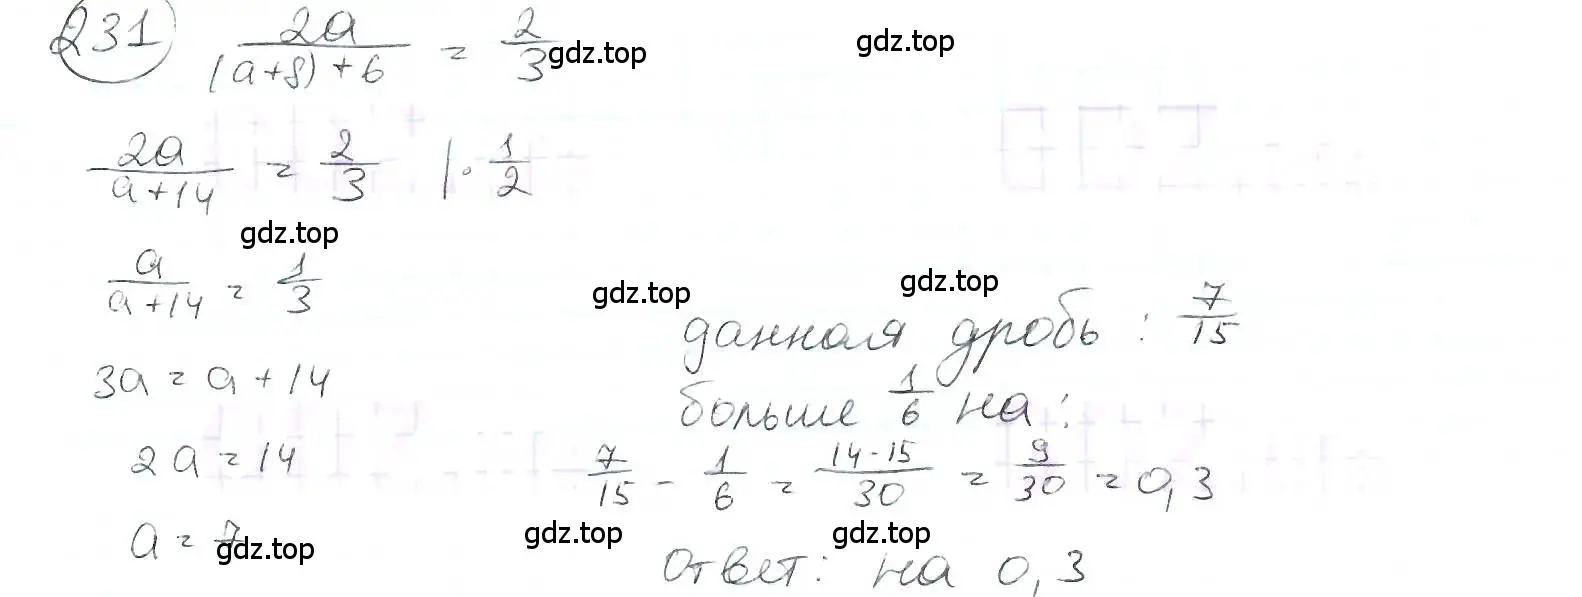 231 2a/((a+8)+6) = 2/3
gdz.top gdz.top
2a/(a+14) = 2/3 | · 1/2
gdz.top
a/(a+14) = 1/3
gdz.top gdz.top
данная дробь: 7/15
3a = a + 14
больше 1/6 на:
2a = 14
7/15 - 1/6 = (14-15)/30 = 9/30 = 0,3
a = 7
gdz.top gdz.top gdz.top
Ответ: на 0,3